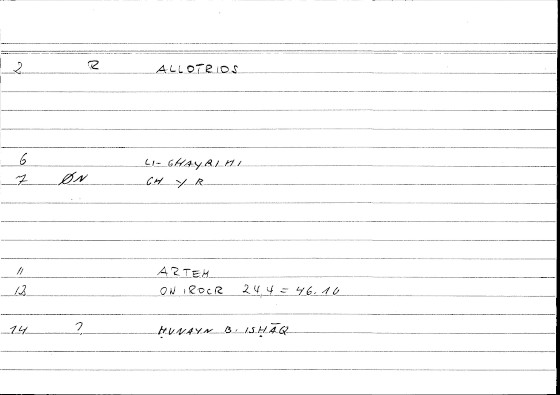 2 R ALLOTRIOS
6 LI-GHAYRIHI
7 ØN GH Y R
11 ARTEM
13 ONIROCR 24,4 = 46.10
14 ? ḤUNAYN B. ISḤĀQ